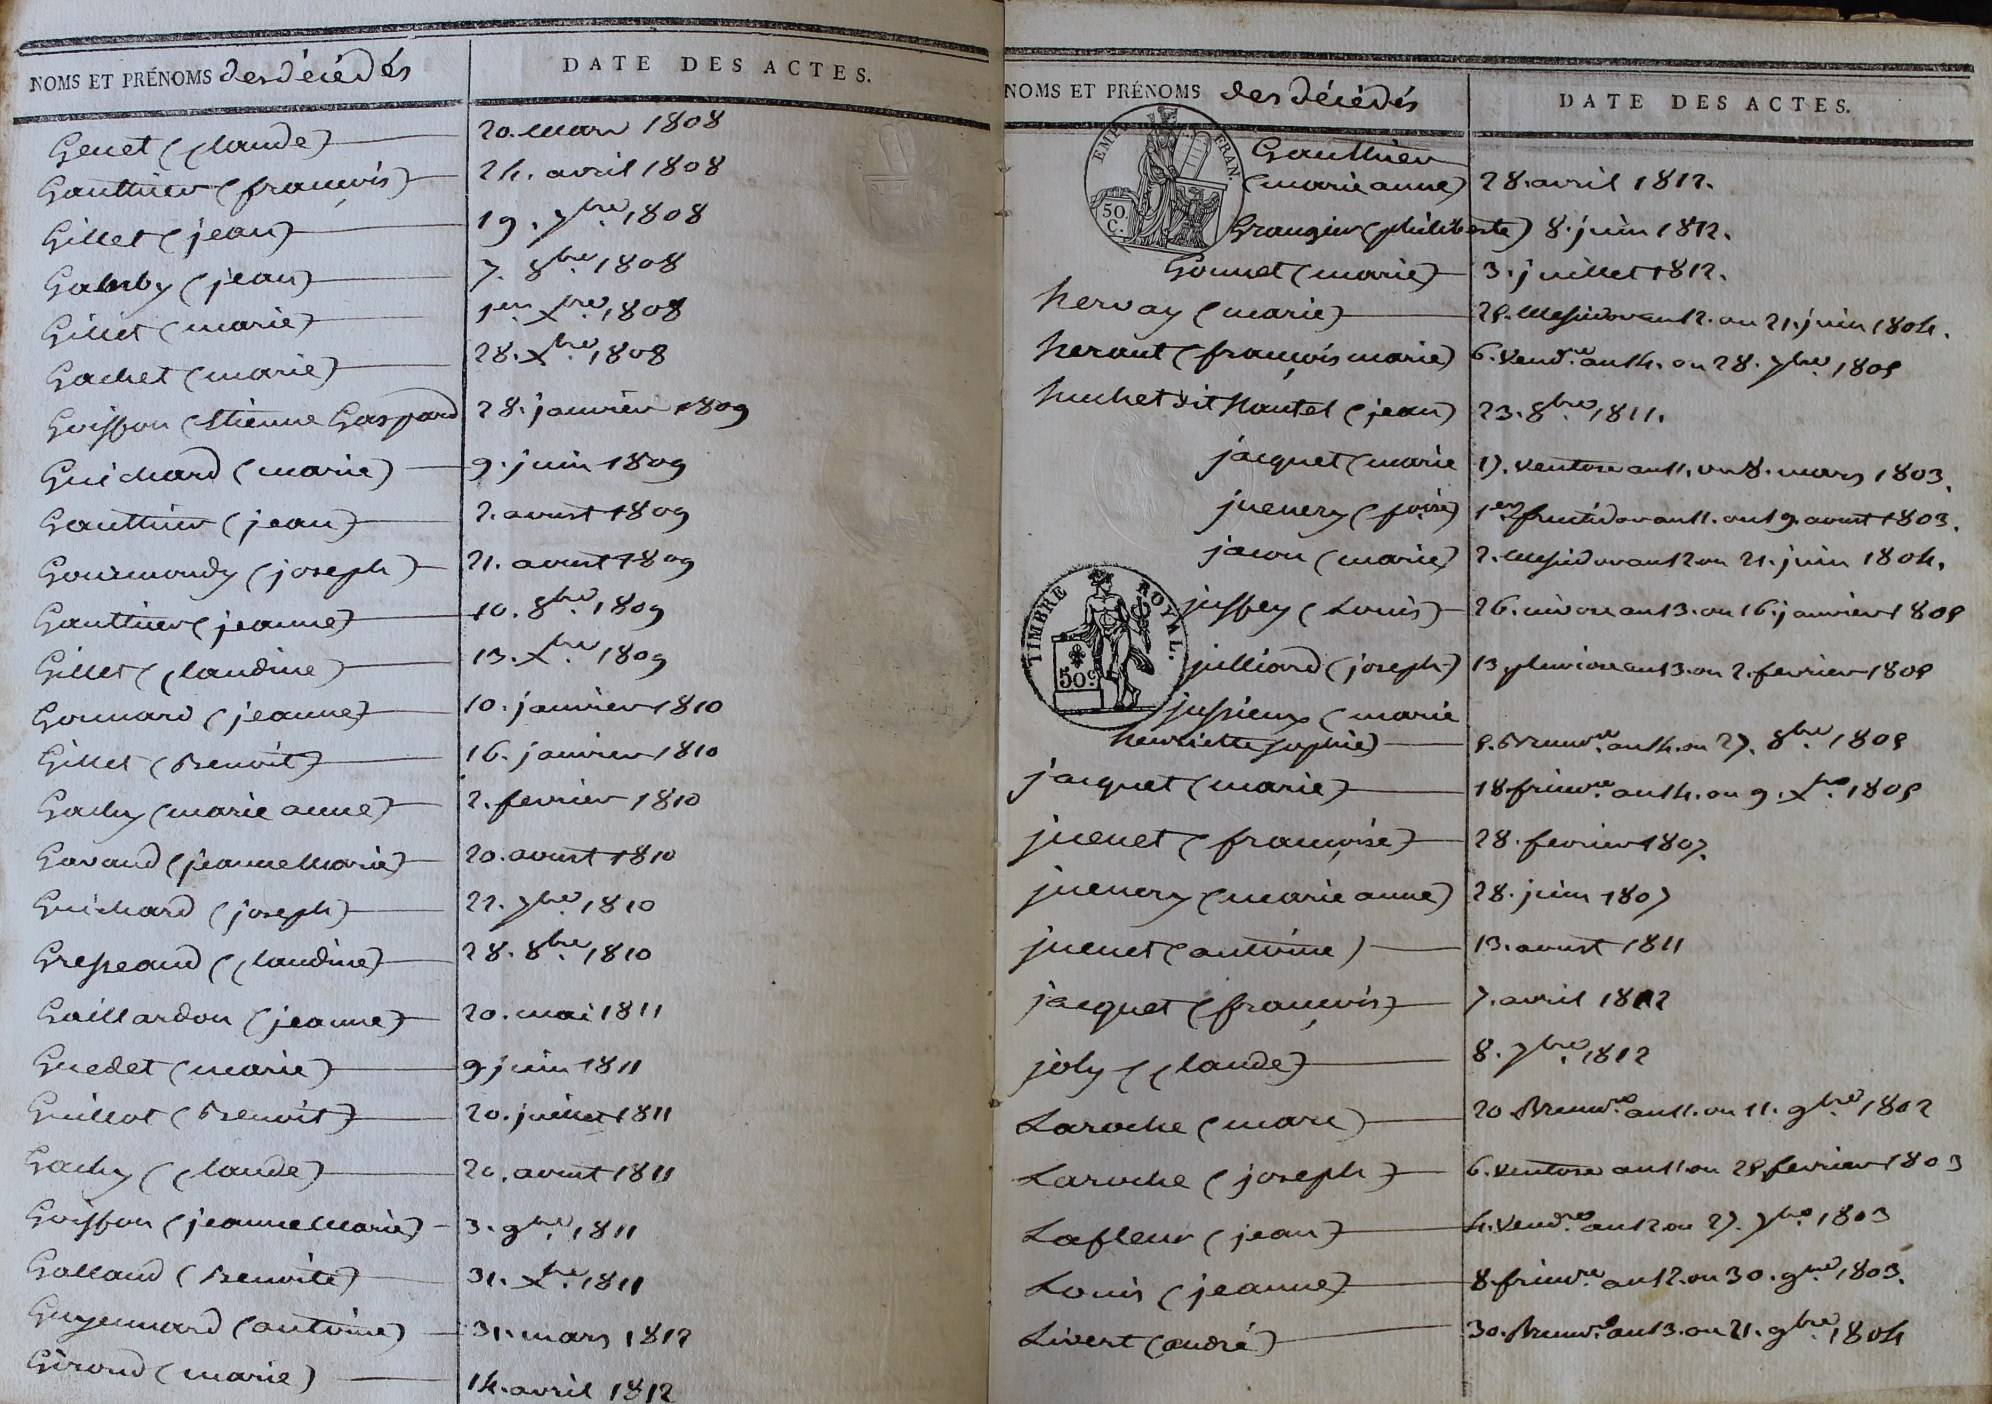 NOMS ET PRÉNOMS des décédés
DATE DES ACTES.
Genet (Claude) 20. mars 1808
Gauthier (françois) 24. avril 1808
Gillet (jean) 19. 7bre. 1808
Galnby (jean) 7. 8bre. 1808
Gillet (marie) 1er. Xbre. 1808
Gachet (marie) 28. Xbre. 1808
Goiffon (Etienne Gaspard 28. janvier 1809
Guichard (marie) 9. juin 1809
Gauthier (jean) 2. aoust 1809
Gourmondy (joseph) 21. aoust 1809
Gauthier (jeanne) 10. 8bre. 1809
Gillet (Claudine) 13. Xbre. 1809
Gonnard (jeanne) 10. janvier 1810
Gillet (Benoit) 16. janvier 1810
Gachy (marie anne) 2. fevrier 1810
Gavand (jeanne Marie) 20. aoust 1810
Guichard (joseph) 22. 7bre. 1810
Gresseaud (Claudine) 28. 8bre. 1810
Gaillardon (jeanne) 20. mai 1811
Guedet (marie) 9 juin 1811
Guillot (Benoit) 20. juillet 1811
Gachy (Claude) 20. aoust 1811
Goiffon (jeanne Marie) 3. 9bre. 1811
Galland (Benoite) 31. Xbre. 1811
Guyennard (antoine) 31. mars 1812
Giroud (marie) 14. avril 1812
NOMS ET PRÉNOMS des décédés
DATE DES ACTES.
EMP. FRAN.
50.
C.
Gauthier
(marie anne) 28. avril 1812.
Grangier (philiberte) 8. juin 1812.
Gonnet (marie) 3. juillet 1812.
hervay (marie) 2e. Messidor an 12. ou 21. juin 1804.
heraut (françois marie) 6. Vendre. an 14. ou 28. 7bre. 1805
huchet dit Nantel (jean) 23. 8bre. 1811.
jacquet (marie 17. Ventose an 11. ou 8. mars 1803.
juenery (foise) 1er fructidor an 11. ou 19. aoust 1803.
jacon (marie) 2. Messidor an 12 ou 21. juin 1804.
TIMBRE ROYAL.
50c
juffey (Louis) 26. nivose an 13. ou 16. janvier 1805
julliard (joseph) 13 pluviose an 13. ou 2. fevrier 1805
jussieux (marie
henriette sophie) 5. Brumre. an 14. ou 27. 8bre. 1805
jacquet (marie) 18 frimre. an 14. ou 9. Xbre. 1805
juenet (françoise) 28. fevrier 1807.
juenery (marie anne) 28. juin 1807
juenet (antoine) 13. aoust 1811
jacquet (françois) 7. avril 1812
joly (Claude) 8. 7bre. 1812
Laroche (marc) 20 Brumre. an 11. ou 11. 9bre. 1802
Laroche (joseph) 6. Ventose an 11. ou 25 fevrier 1803
Lafleur (jean) 4. Vendre. an 12 ou 27. 7bre. 1803
Louis (jeanne) 8. frimre. an 12. ou 30. 9bre. 1803.
Livert (andré) 30. Brumre. an 13. ou 21. 9bre. 1804